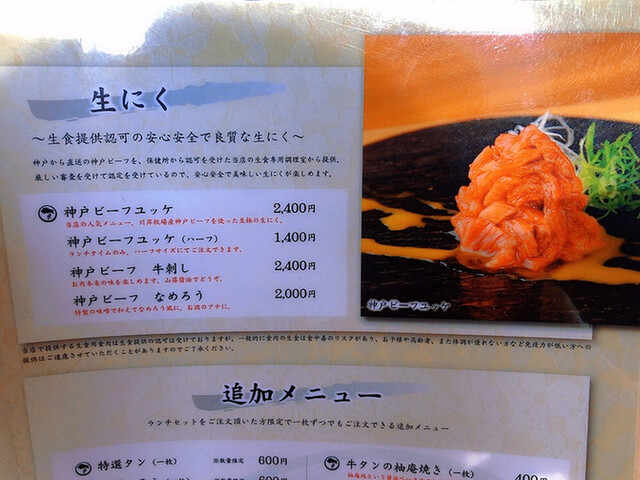 生にく
～生食提供認可の安心安全で良質な生にく～
神戸から直送の神戸ビーフを、保健所から認可を受けた当店の生食専用調理室から提供。
厳しい審査を受けて認定を受けているので、安心安全で美味しい生にくが楽しめます。
神戸ビーフユッケ 2,400円
当店の人気メニュー。川岸牧場産神戸ビーフを使った至極の生にく。
神戸ビーフユッケ（ハーフ） 1,400円
ランチタイムのみ、ハーフサイズにてご注文できます。
神戸ビーフ 牛刺し 2,400円
お肉本来の味を楽しめます。山葵醤油でどうぞ。
神戸ビーフ なめろう 2,000円
特製の味噌で和えてなめろう風に。お酒のアテに。
神戸ビーフユッケ
当店で提供する生食用食肉は生食提供の認可は受けておりますが、一般的に食肉の生食は食中毒のリスクがあり、お子様や高齢者、また体調が優れない方など免疫力が低い方への
提供はご遠慮させていただくことがありますのでご了承ください。
追加メニュー
ランチセットをご注文頂いた方限定で一枚ずつでもご注文できる追加メニュー
特選タン（一枚） ※数量限定 600円
牛タンの柚庵焼き（一枚） 400円
600円